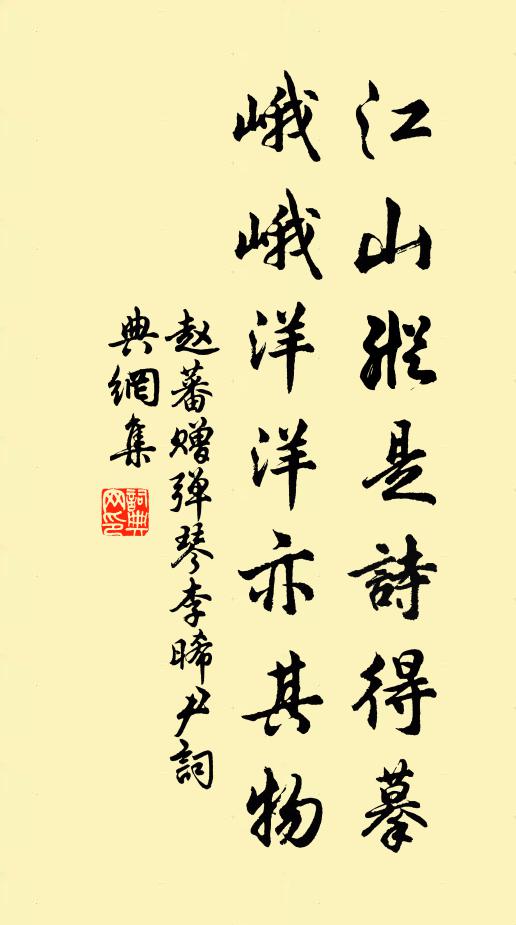 江山縱是詩得摹
峨峨洋洋亦其物
赵蕃赠弹琴李晞尹詞
典網集
詞典
网印